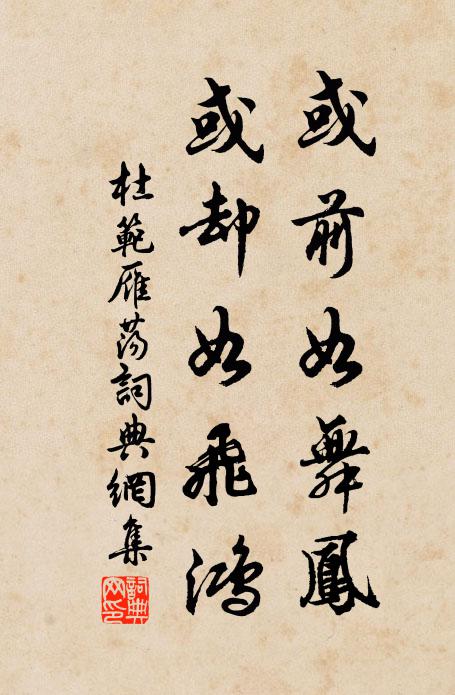 或前如舞鳳
或却如飛鴻
杜範雁蕩詞典網集
詞典網印